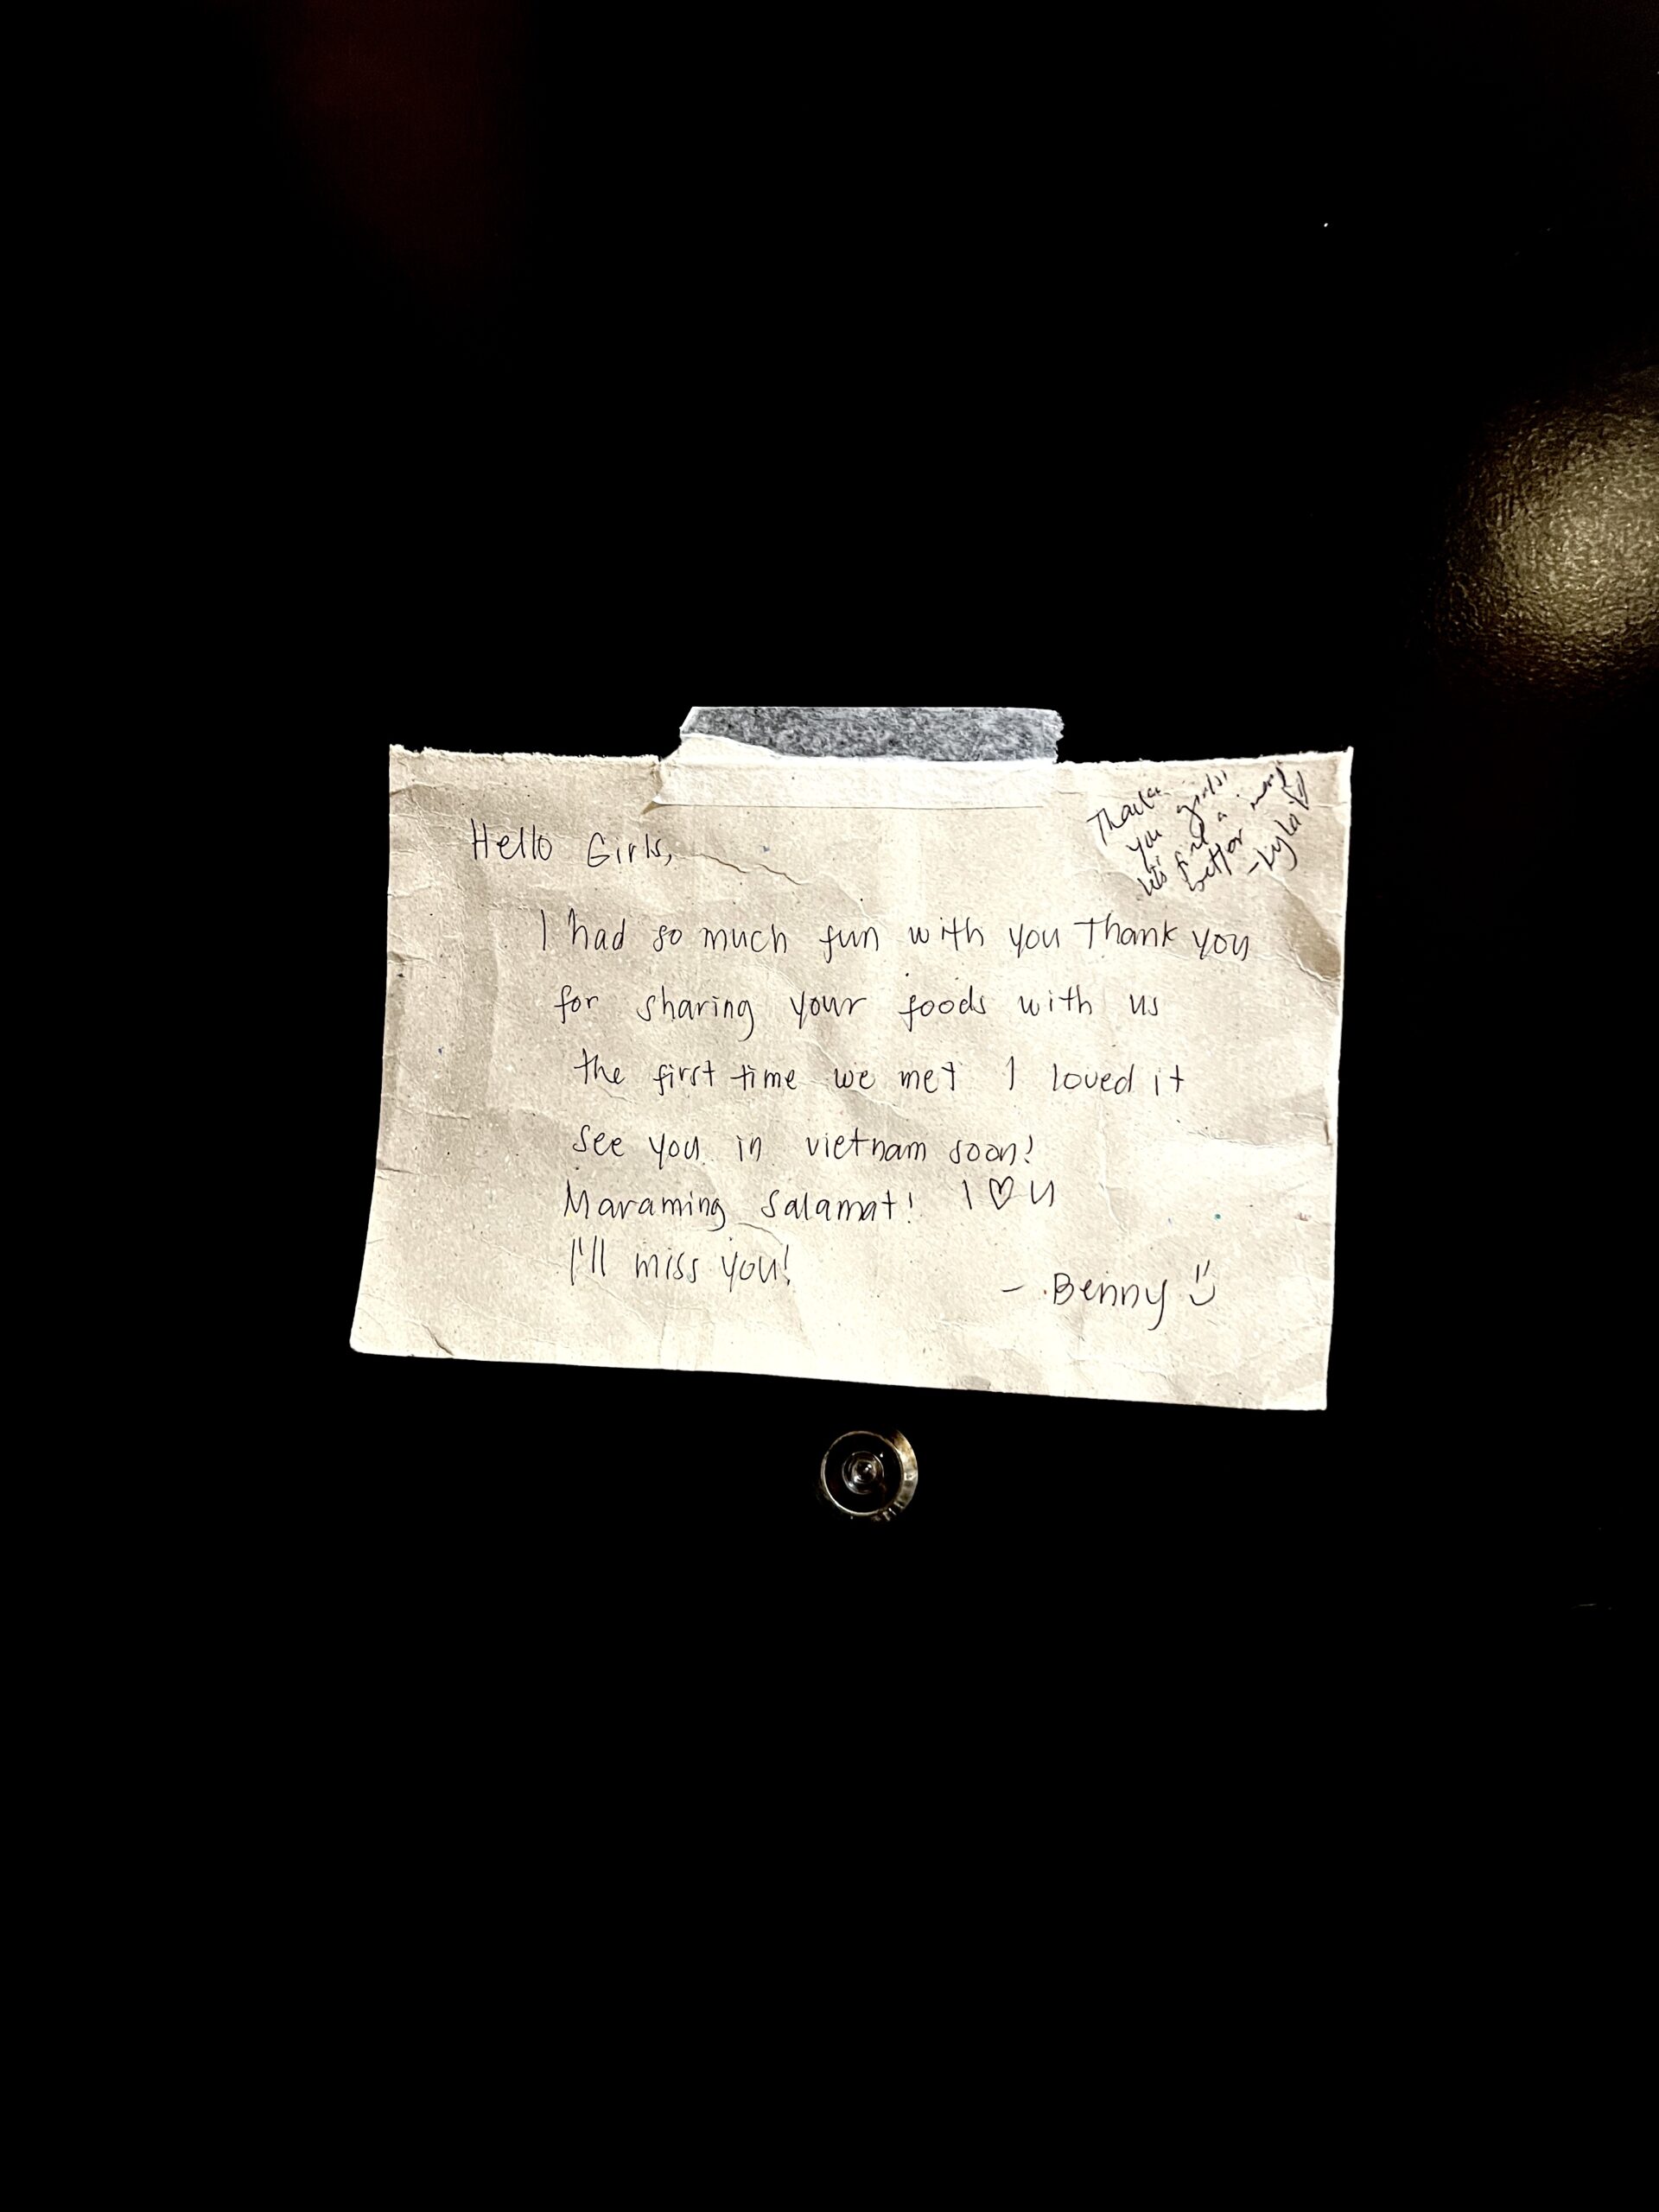 Hello Girls,
I had so much fun with you Thank you
for sharing your foods with us
the first time we met I loved it
see you in vietnam soon!
Maraming Salamat! I ♡ U
I'll miss you!
- Benny
Thank
you girls!
a